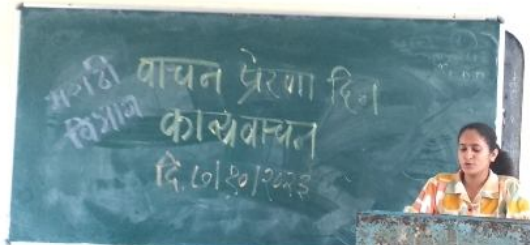 मराठी विभाग
वाचन प्रेरणा दिन
काव्यवाचन
दि. ७/१०/२०२३